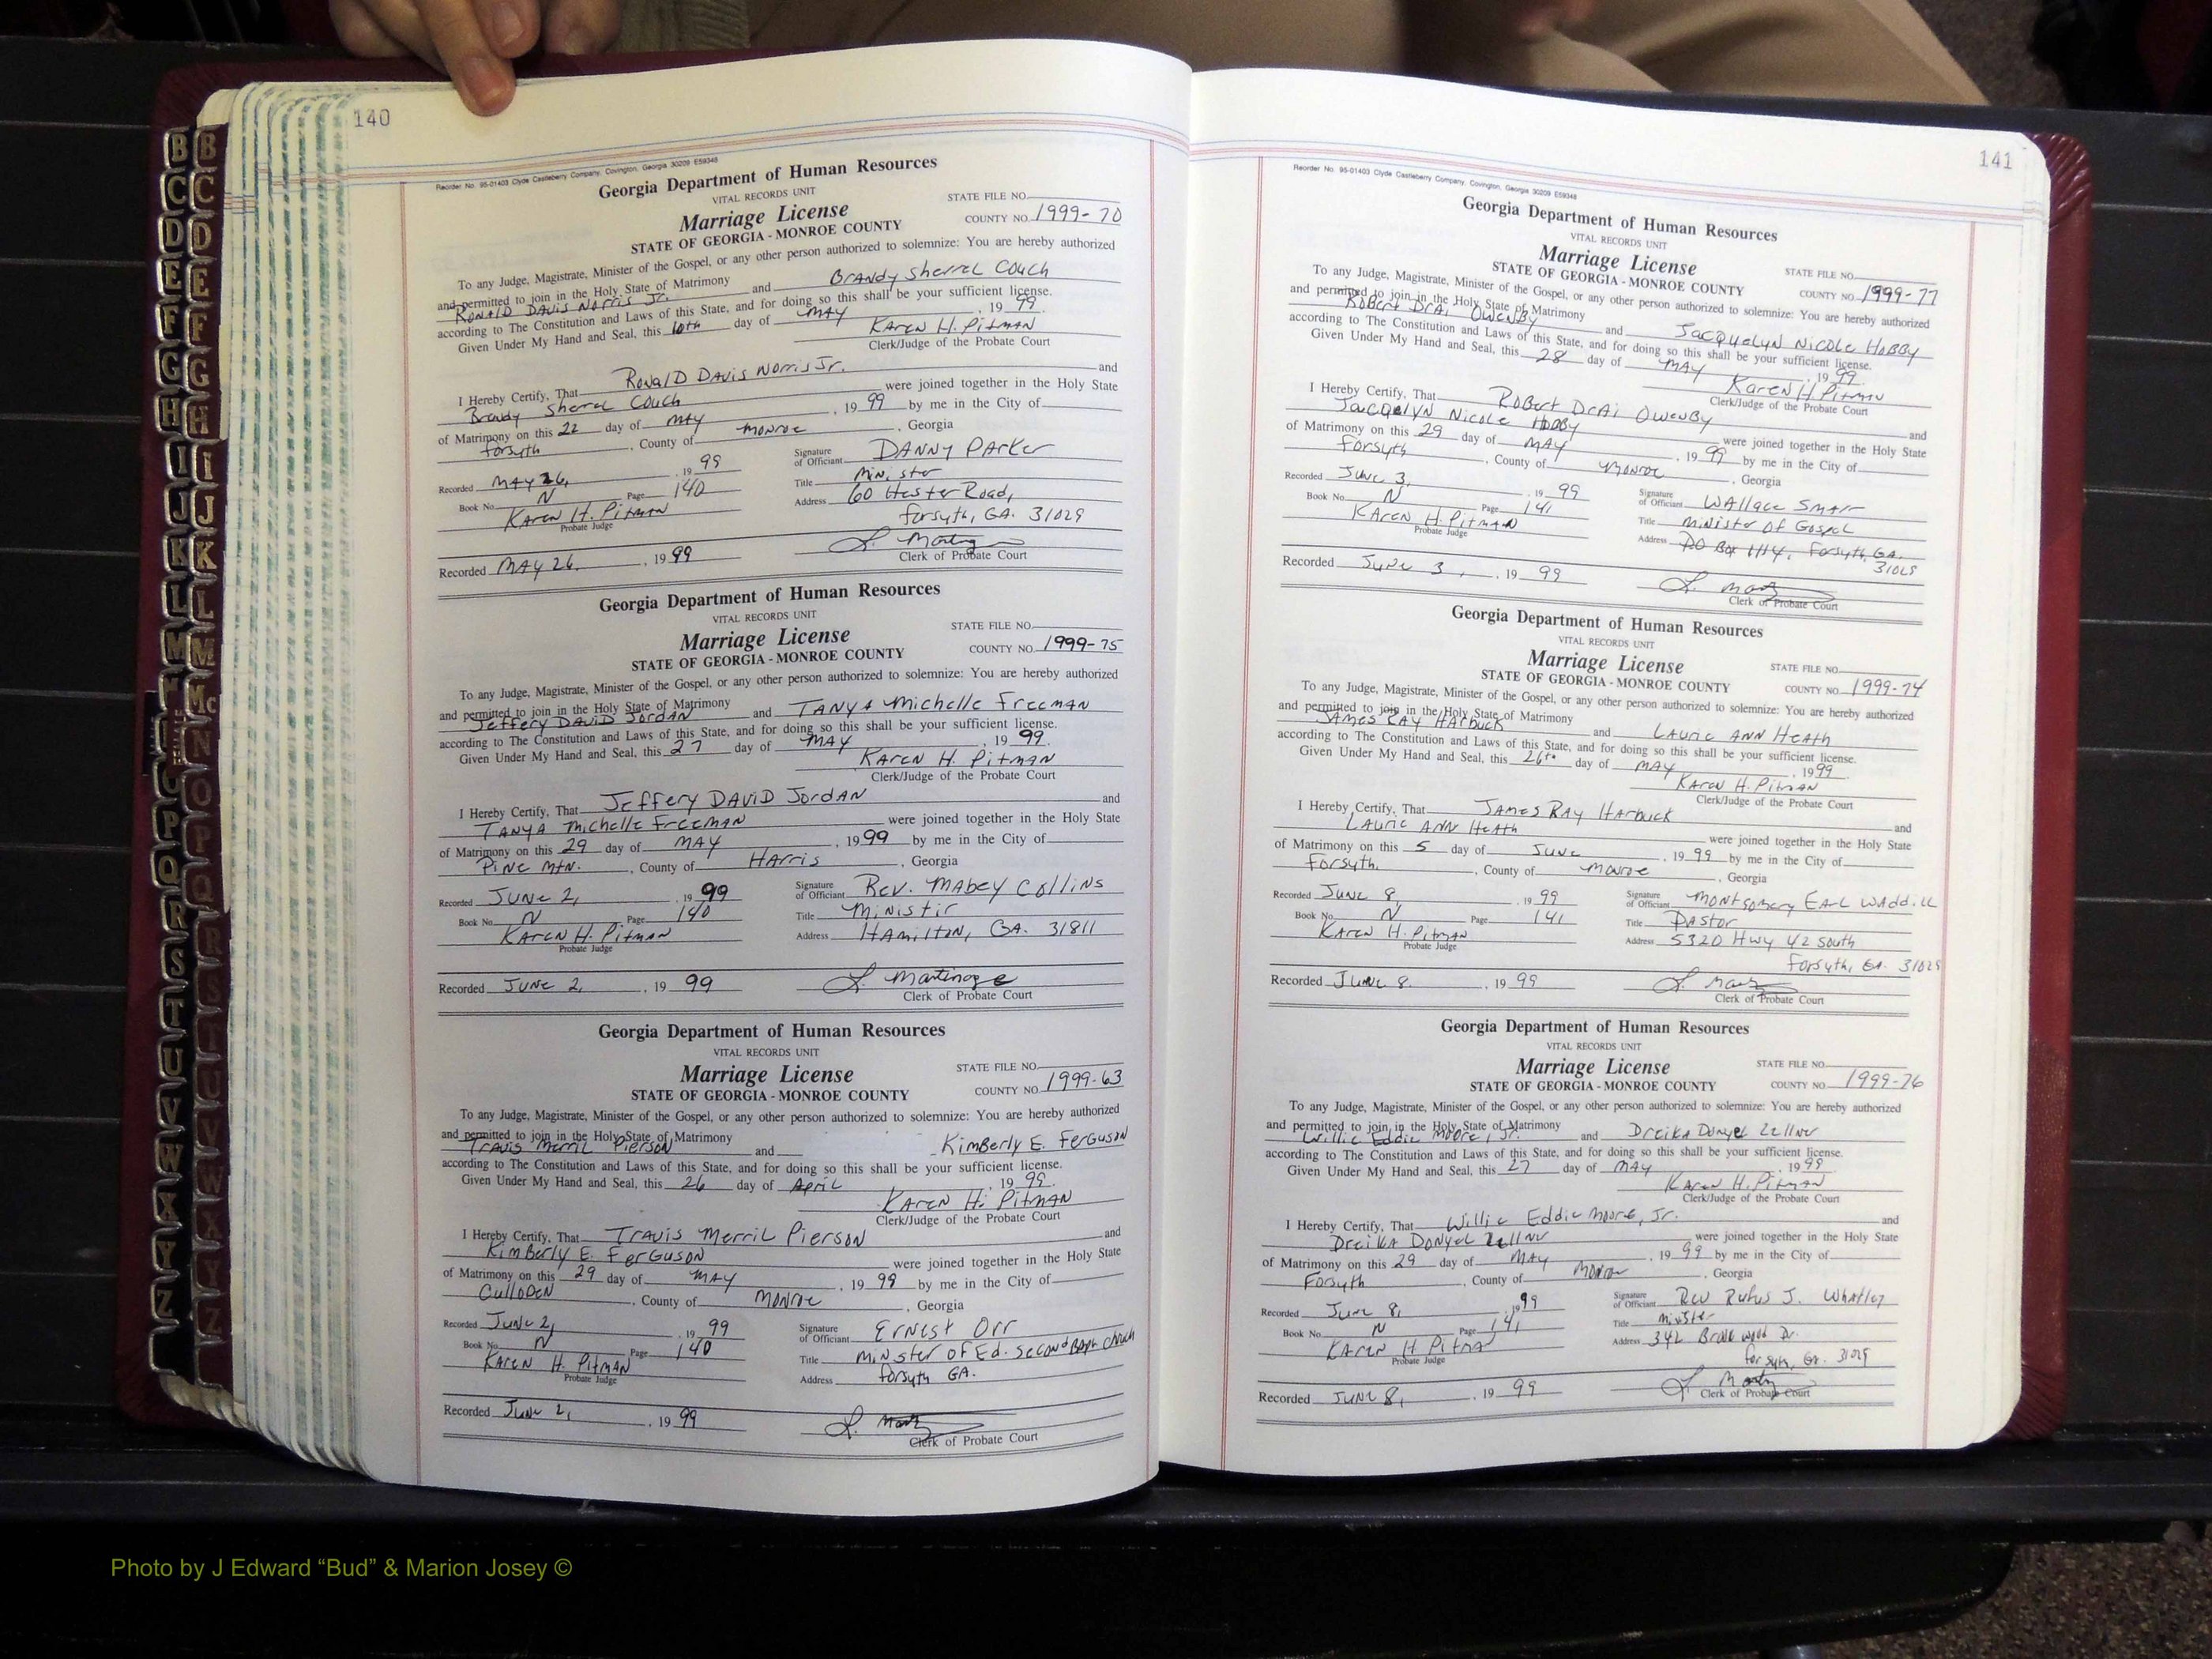 140
Reorder No. 95-01403 Clyde Castleberry Company, Covington, Georgia 30209 E59348
Georgia Department of Human Resources
VITAL RECORDS UNIT
Marriage License
STATE OF GEORGIA - MONROE COUNTY
STATE FILE NO.
COUNTY NO. 1999-70
To any Judge, Magistrate, Minister of the Gospel, or any other person authorized to solemnize: You are hereby authorized
and permitted to join in the Holy State of Matrimony
Ronald Davis Norris Jr. and Brandy Sherrel Couch
according to The Constitution and Laws of this State, and for doing so this shall be your sufficient license.
Given Under My Hand and Seal, this 10th day of May, 1999.
Karen H. Pitman
Clerk/Judge of the Probate Court
I Hereby Certify, That Ronald Davis Norris Jr. and
Brandy Sherrel Couch were joined together in the Holy State
of Matrimony on this 22 day of May, 1999 by me in the City of
Forsyth, County of Monroe, Georgia
Recorded May 26, 1999
Book No. N Page 140
Karen H. Pitman
Probate Judge
Signature of Officiant Danny Parker
Title Minister
Address 60 Hester Road,
Forsyth, GA. 31029
Recorded May 26, 1999
Clerk of Probate Court
Georgia Department of Human Resources
VITAL RECORDS UNIT
Marriage License
STATE OF GEORGIA - MONROE COUNTY
STATE FILE NO.
COUNTY NO. 1999-75
To any Judge, Magistrate, Minister of the Gospel, or any other person authorized to solemnize: You are hereby authorized
and permitted to join in the Holy State of Matrimony
Jeffery David Jordan and Tanya Michelle Freeman
according to The Constitution and Laws of this State, and for doing so this shall be your sufficient license.
Given Under My Hand and Seal, this 27 day of May, 1999.
Karen H. Pitman
Clerk/Judge of the Probate Court
I Hereby Certify, That Jeffery David Jordan and
Tanya Michelle Freeman were joined together in the Holy State
of Matrimony on this 29 day of May, 1999 by me in the City of
Pine Mtn., County of Harris, Georgia
Recorded June 2, 1999
Book No. N Page 140
Karen H. Pitman
Probate Judge
Signature of Officiant Rev. Mabey Collins
Title Ministir
Address Hamilton, GA. 31811
Recorded June 2, 1999
Clerk of Probate Court
Georgia Department of Human Resources
VITAL RECORDS UNIT
Marriage License
STATE OF GEORGIA - MONROE COUNTY
STATE FILE NO.
COUNTY NO. 1999-63
To any Judge, Magistrate, Minister of the Gospel, or any other person authorized to solemnize: You are hereby authorized
and permitted to join in the Holy State of Matrimony
Travis Merril Pierson and Kimberly E. Ferguson
according to The Constitution and Laws of this State, and for doing so this shall be your sufficient license.
Given Under My Hand and Seal, this 26 day of April, 1999.
Karen H. Pitman
Clerk/Judge of the Probate Court
I Hereby Certify, That Travis Merril Pierson and
Kimberly E. Ferguson were joined together in the Holy State
of Matrimony on this 29 day of May, 1999 by me in the City of
Culloden, County of Monroe, Georgia
Recorded June 2, 1999
Book No. N Page 140
Karen H. Pitman
Probate Judge
Signature of Officiant Ernest Orr
Title Minster of Ed. Second Bapt Church
Address Forsyth GA.
Recorded June 2, 1999
Clerk of Probate Court
141
Reorder No. 95-01403 Clyde Castleberry Company, Covington, Georgia 30209 E59348
Georgia Department of Human Resources
VITAL RECORDS UNIT
Marriage License
STATE OF GEORGIA - MONROE COUNTY
STATE FILE NO.
COUNTY NO. 1999-77
To any Judge, Magistrate, Minister of the Gospel, or any other person authorized to solemnize: You are hereby authorized
and permitted to join in the Holy State of Matrimony
Robert Drai Owenby and Jacquelyn Nicole Hobby
according to The Constitution and Laws of this State, and for doing so this shall be your sufficient license.
Given Under My Hand and Seal, this 28 day of May, 1999.
Karen H Pitman
Clerk/Judge of the Probate Court
I Hereby Certify, That Robert Drai Owenby and
Jacqelyn Nicole Hobby were joined together in the Holy State
of Matrimony on this 29 day of May, 1999 by me in the City of
Forsyth, County of Monroe, Georgia
Recorded June 3, 1999
Book No. N Page 141
Karen H. Pitman
Probate Judge
Signature of Officiant Wallace
Title Minister of Gospel
Address PO Box 1114, Forsyth, GA.
31029
Recorded June 3, 1999
Clerk of Probate Court
Georgia Department of Human Resources
VITAL RECORDS UNIT
Marriage License
STATE OF GEORGIA - MONROE COUNTY
STATE FILE NO.
COUNTY NO. 1999-74
To any Judge, Magistrate, Minister of the Gospel, or any other person authorized to solemnize: You are hereby authorized
and permitted to join in the Holy State of Matrimony
James Ray Harbuck and Laurie Ann Heath
according to The Constitution and Laws of this State, and for doing so this shall be your sufficient license.
Given Under My Hand and Seal, this 26th day of May, 1999.
Karen H. Pitman
Clerk/Judge of the Probate Court
I Hereby Certify, That James Ray Harbuck and
Laurie Ann Heath were joined together in the Holy State
of Matrimony on this 5 day of June, 1999 by me in the City of
Forsyth, County of Monroe, Georgia
Recorded June 8, 1999
Book No. N Page 141
Karen H. Pitman
Probate Judge
Signature of Officiant Montgomery Earl Waddill
Title Pastor
Address 5320 Hwy 42 South
Forsyth, GA. 31029
Recorded June 8, 1999
Clerk of Probate Court
Georgia Department of Human Resources
VITAL RECORDS UNIT
Marriage License
STATE OF GEORGIA - MONROE COUNTY
STATE FILE NO.
COUNTY NO. 1999-76
To any Judge, Magistrate, Minister of the Gospel, or any other person authorized to solemnize: You are hereby authorized
and permitted to join in the Holy State of Matrimony
Willie Eddie Moore, Jr. and Dreika Donyel Zellner
according to The Constitution and Laws of this State, and for doing so this shall be your sufficient license.
Given Under My Hand and Seal, this 27 day of May, 1999.
Karen H. Pitman
Clerk/Judge of the Probate Court
I Hereby Certify, That Willie Eddie Moore, Jr. and
Dreika Donyel Zellner were joined together in the Holy State
of Matrimony on this 29 day of May, 1999 by me in the City of
Forsyth, County of Monroe, Georgia
Recorded June 8, 1999
Book No. N Page 141
Karen H Pitman
Probate Judge
Signature of Officiant Rev Rufus J. Whatley
Title Minister
Address 342 Brookwood Dr.
Forsyth, Ga. 31029
Recorded June 8, 1999
Clerk of Probate Court
B C D E F G H I J K L M Mc N O P Q R S T U V W X Y Z
Photo by J Edward “Bud” & Marion Josey ©